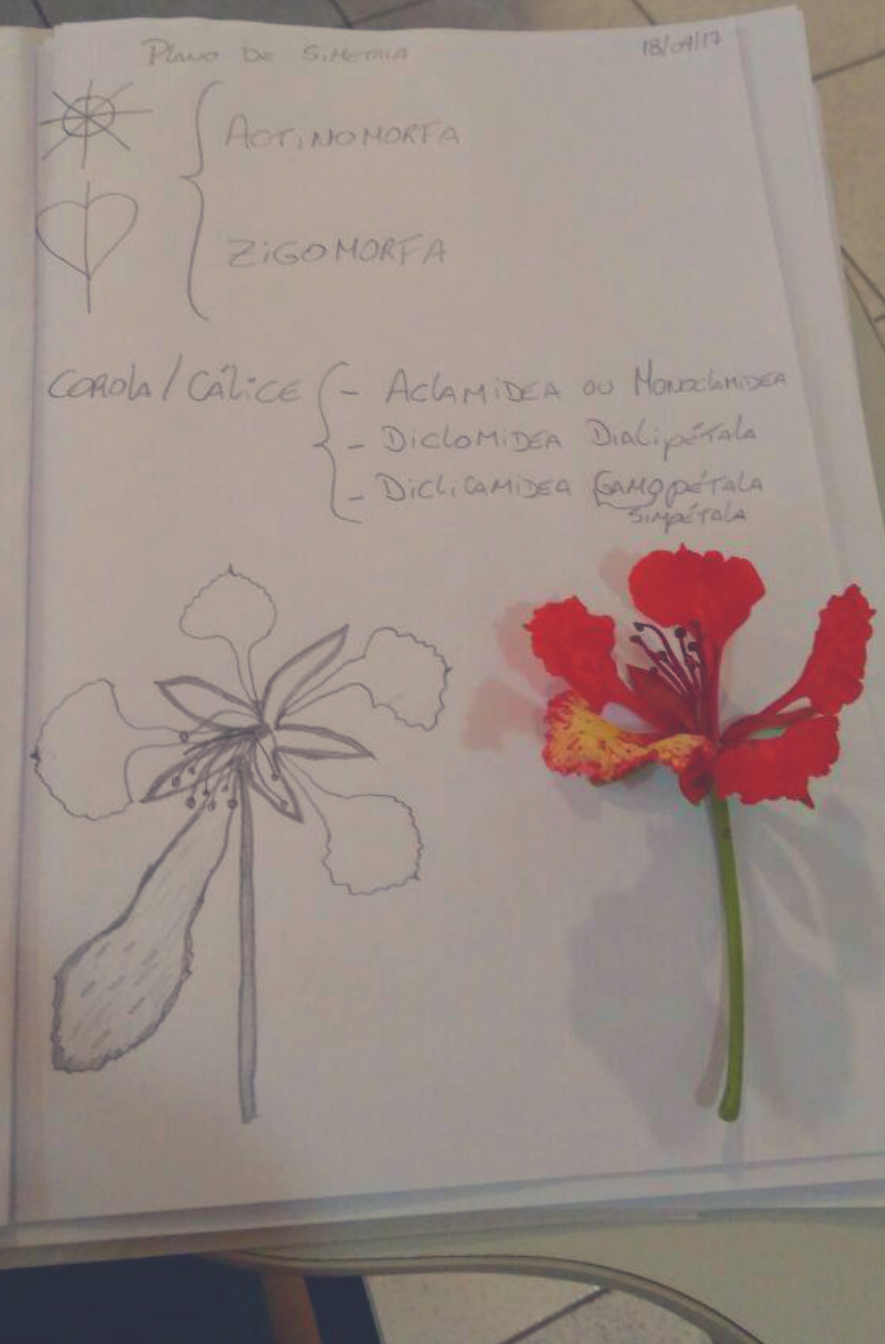 PLANO DE SIMETRIA 18/09/17
ACTINOMORFA
ZIGOMORFA
COROLA/CÁLICE - ACLAMIDEA OU MONOCLAMIDEA
- DICLOMIDEA DIALIPÉTALA
- DICLICAMIDEA GAMOPÉTALA
SIMPÉTALA